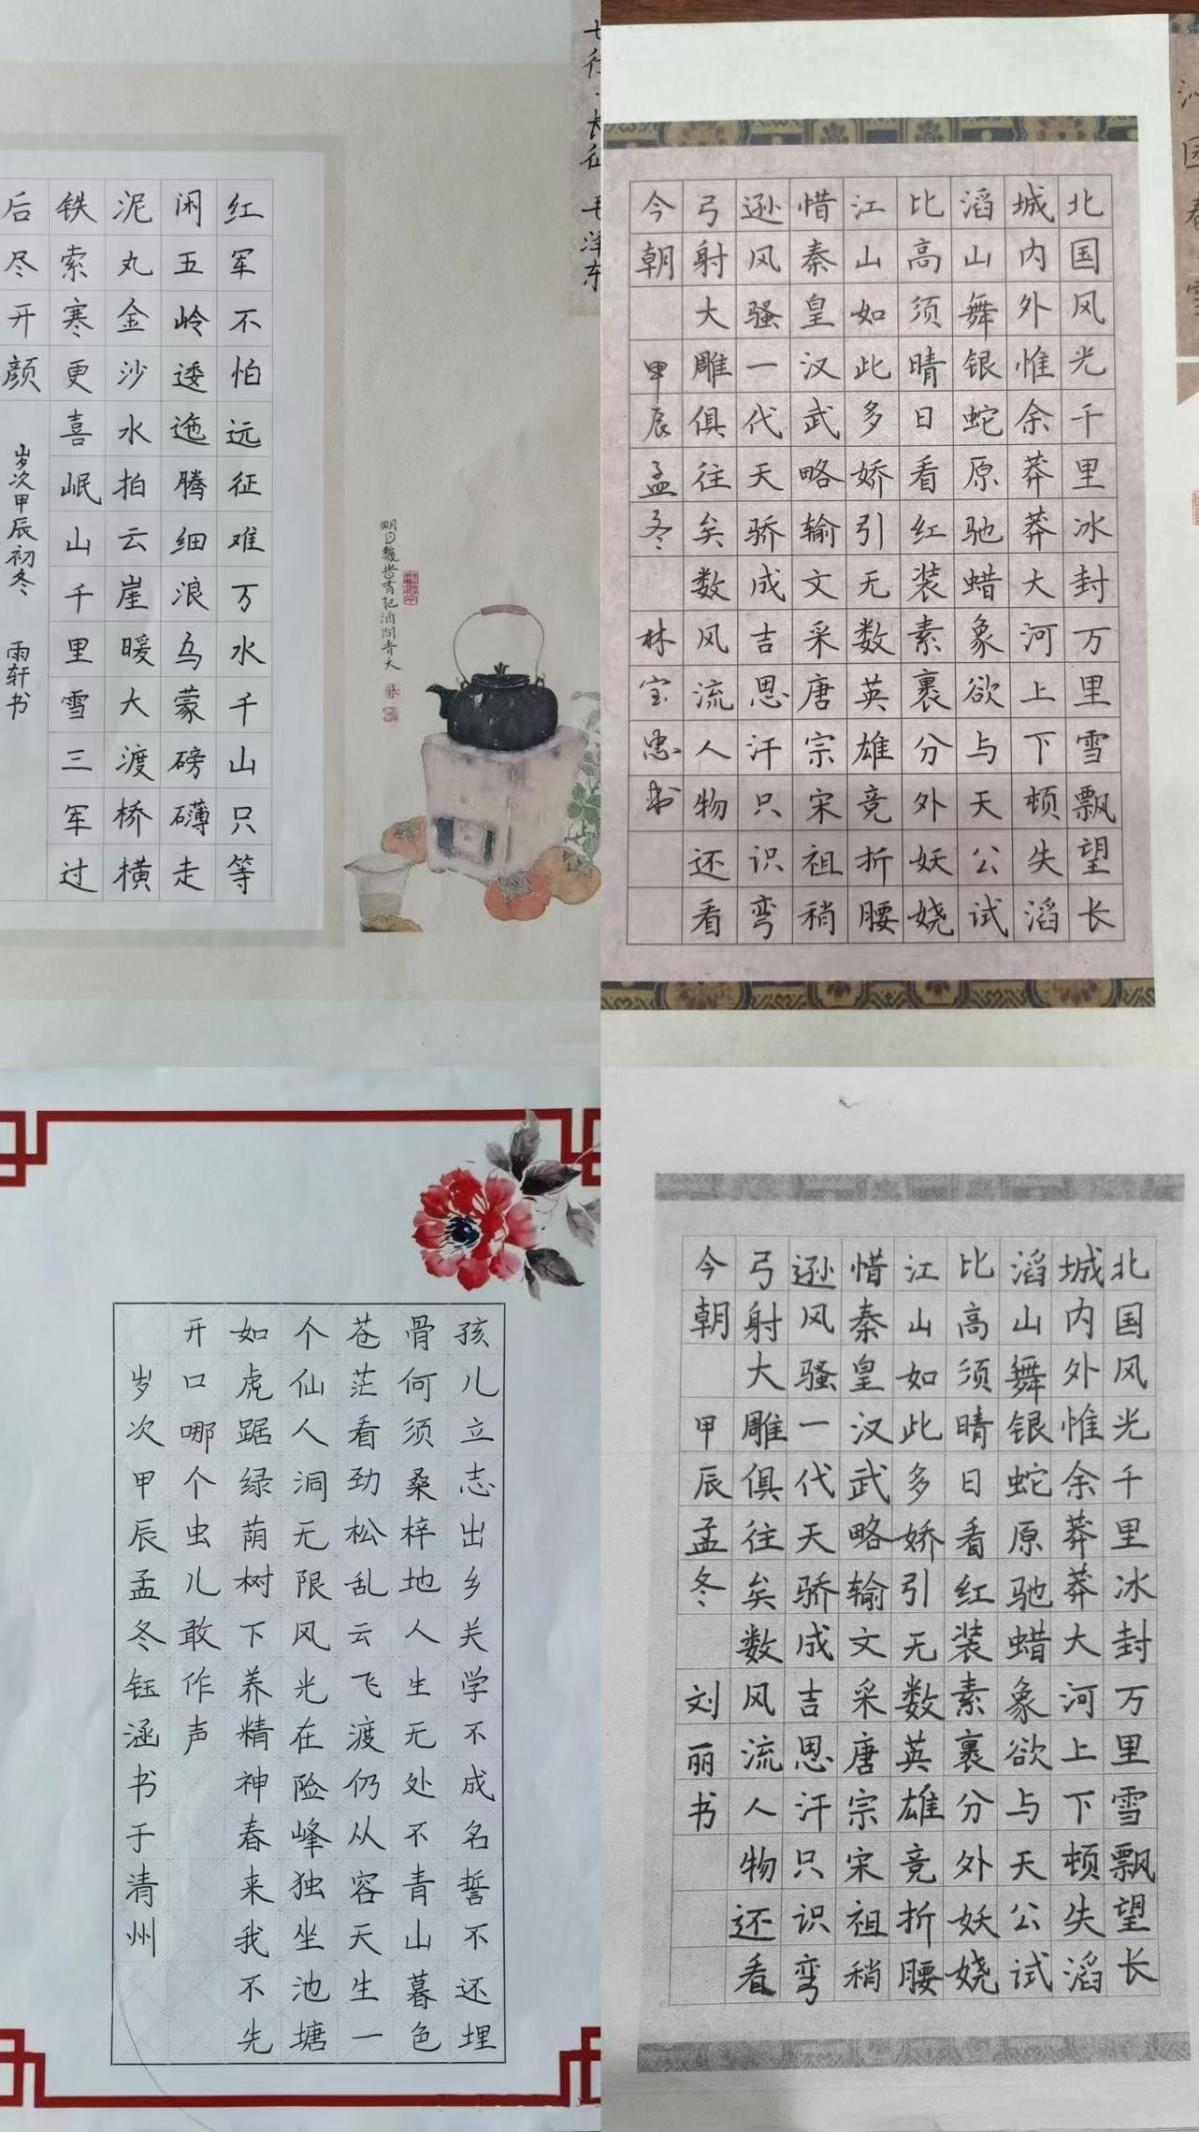 七律·长征 毛泽东
红军不怕远征难万水千山只等
闲五岭逶迤腾细浪乌蒙磅礴走
泥丸金沙水拍云崖暖大渡桥横
铁索寒更喜岷山千里雪三军过
后尽开颜
岁次甲辰初冬 雨轩书
明月幾時有把酒問青天
沁园春 雪
北国风光千里冰封万里雪飘望长
城内外惟余莽莽大河上下顿失滔
滔山舞银蛇原驰蜡象欲与天公试
比高须晴日看红装素裹分外妖娆
江山如此多娇引无数英雄竞折腰
惜秦皇汉武略输文采唐宗宋祖稍
逊风骚一代天骄成吉思汗只识弯
弓射大雕俱往矣数风流人物还看
今朝 甲辰孟冬 林宝忠书
孩儿立志出乡关学不成名誓不还埋
骨何须桑梓地人生无处不青山暮色
苍茫看劲松乱云飞渡仍从容天生一
个仙人洞无限风光在险峰独坐池塘
如虎踞绿荫树下养精神春来我不先
开口哪个虫儿敢作声
岁次甲辰孟冬钰涵书于清州
北国风光千里冰封万里雪飘望长
城内外惟余莽莽大河上下顿失滔
滔山舞银蛇原驰蜡象欲与天公试
比高须晴日看红装素裹分外妖娆
江山如此多娇引无数英雄竞折腰
惜秦皇汉武略输文采唐宗宋祖稍
逊风骚一代天骄成吉思汗只识弯
弓射大雕俱往矣数风流人物还看
今朝 甲辰孟冬 刘丽书